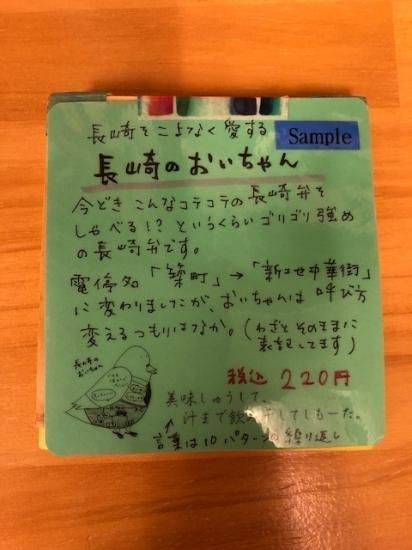 長崎をこよなく愛する
Sample
長崎のおいちゃん
今どき こんなコテコテの長崎弁を
しゃべる!? というくらいゴリゴリ強め
の長崎弁です。
電停名 「築町」→「新地中華街」
に変わりましたが、おいちゃんは 呼び方
変えるつもりはなか。(わざと そのままに
表記してます)
税込 220円
長崎の
おいちゃん
美味しゅうして、
汁まで飲み干してしもーた。
↑
言葉は10パターンの繰り返し